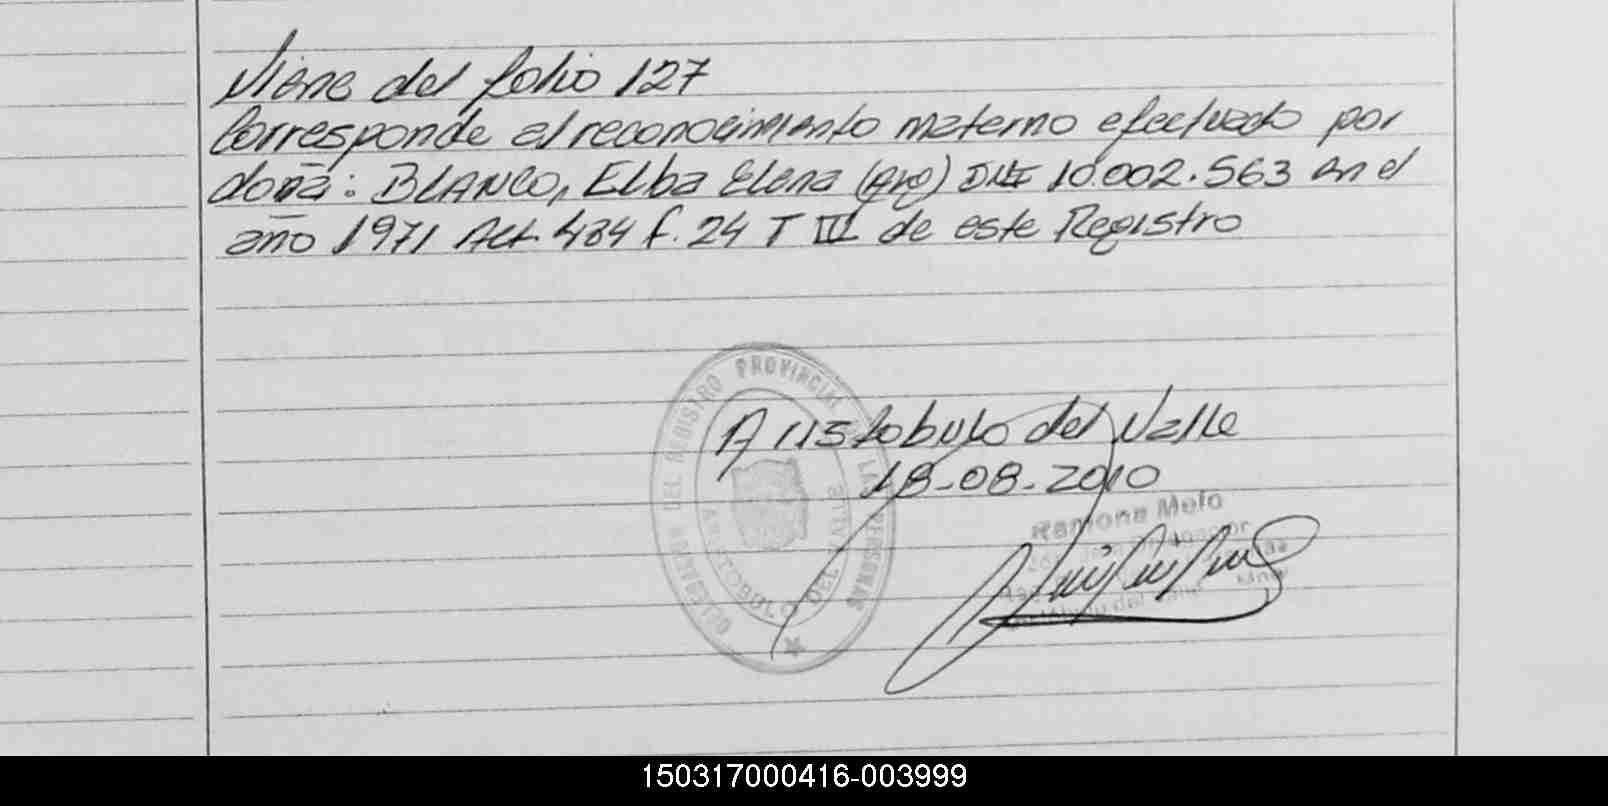 Viene del folio 127
Corresponde al reconocimiento materno efectuado por
doña: BLANCO, Elba Elena (Arg) DNI 10.002.563 en el
año 1971 Act. 484 f. 24 T III de este Registro
DELEGACION DEL REGISTRO PROVINCIAL DE LAS PERSONAS
ARISTOBULO DEL VALLE
Aristobulo del Valle
18-08-2010
Ramona Melo
150317000416-003999